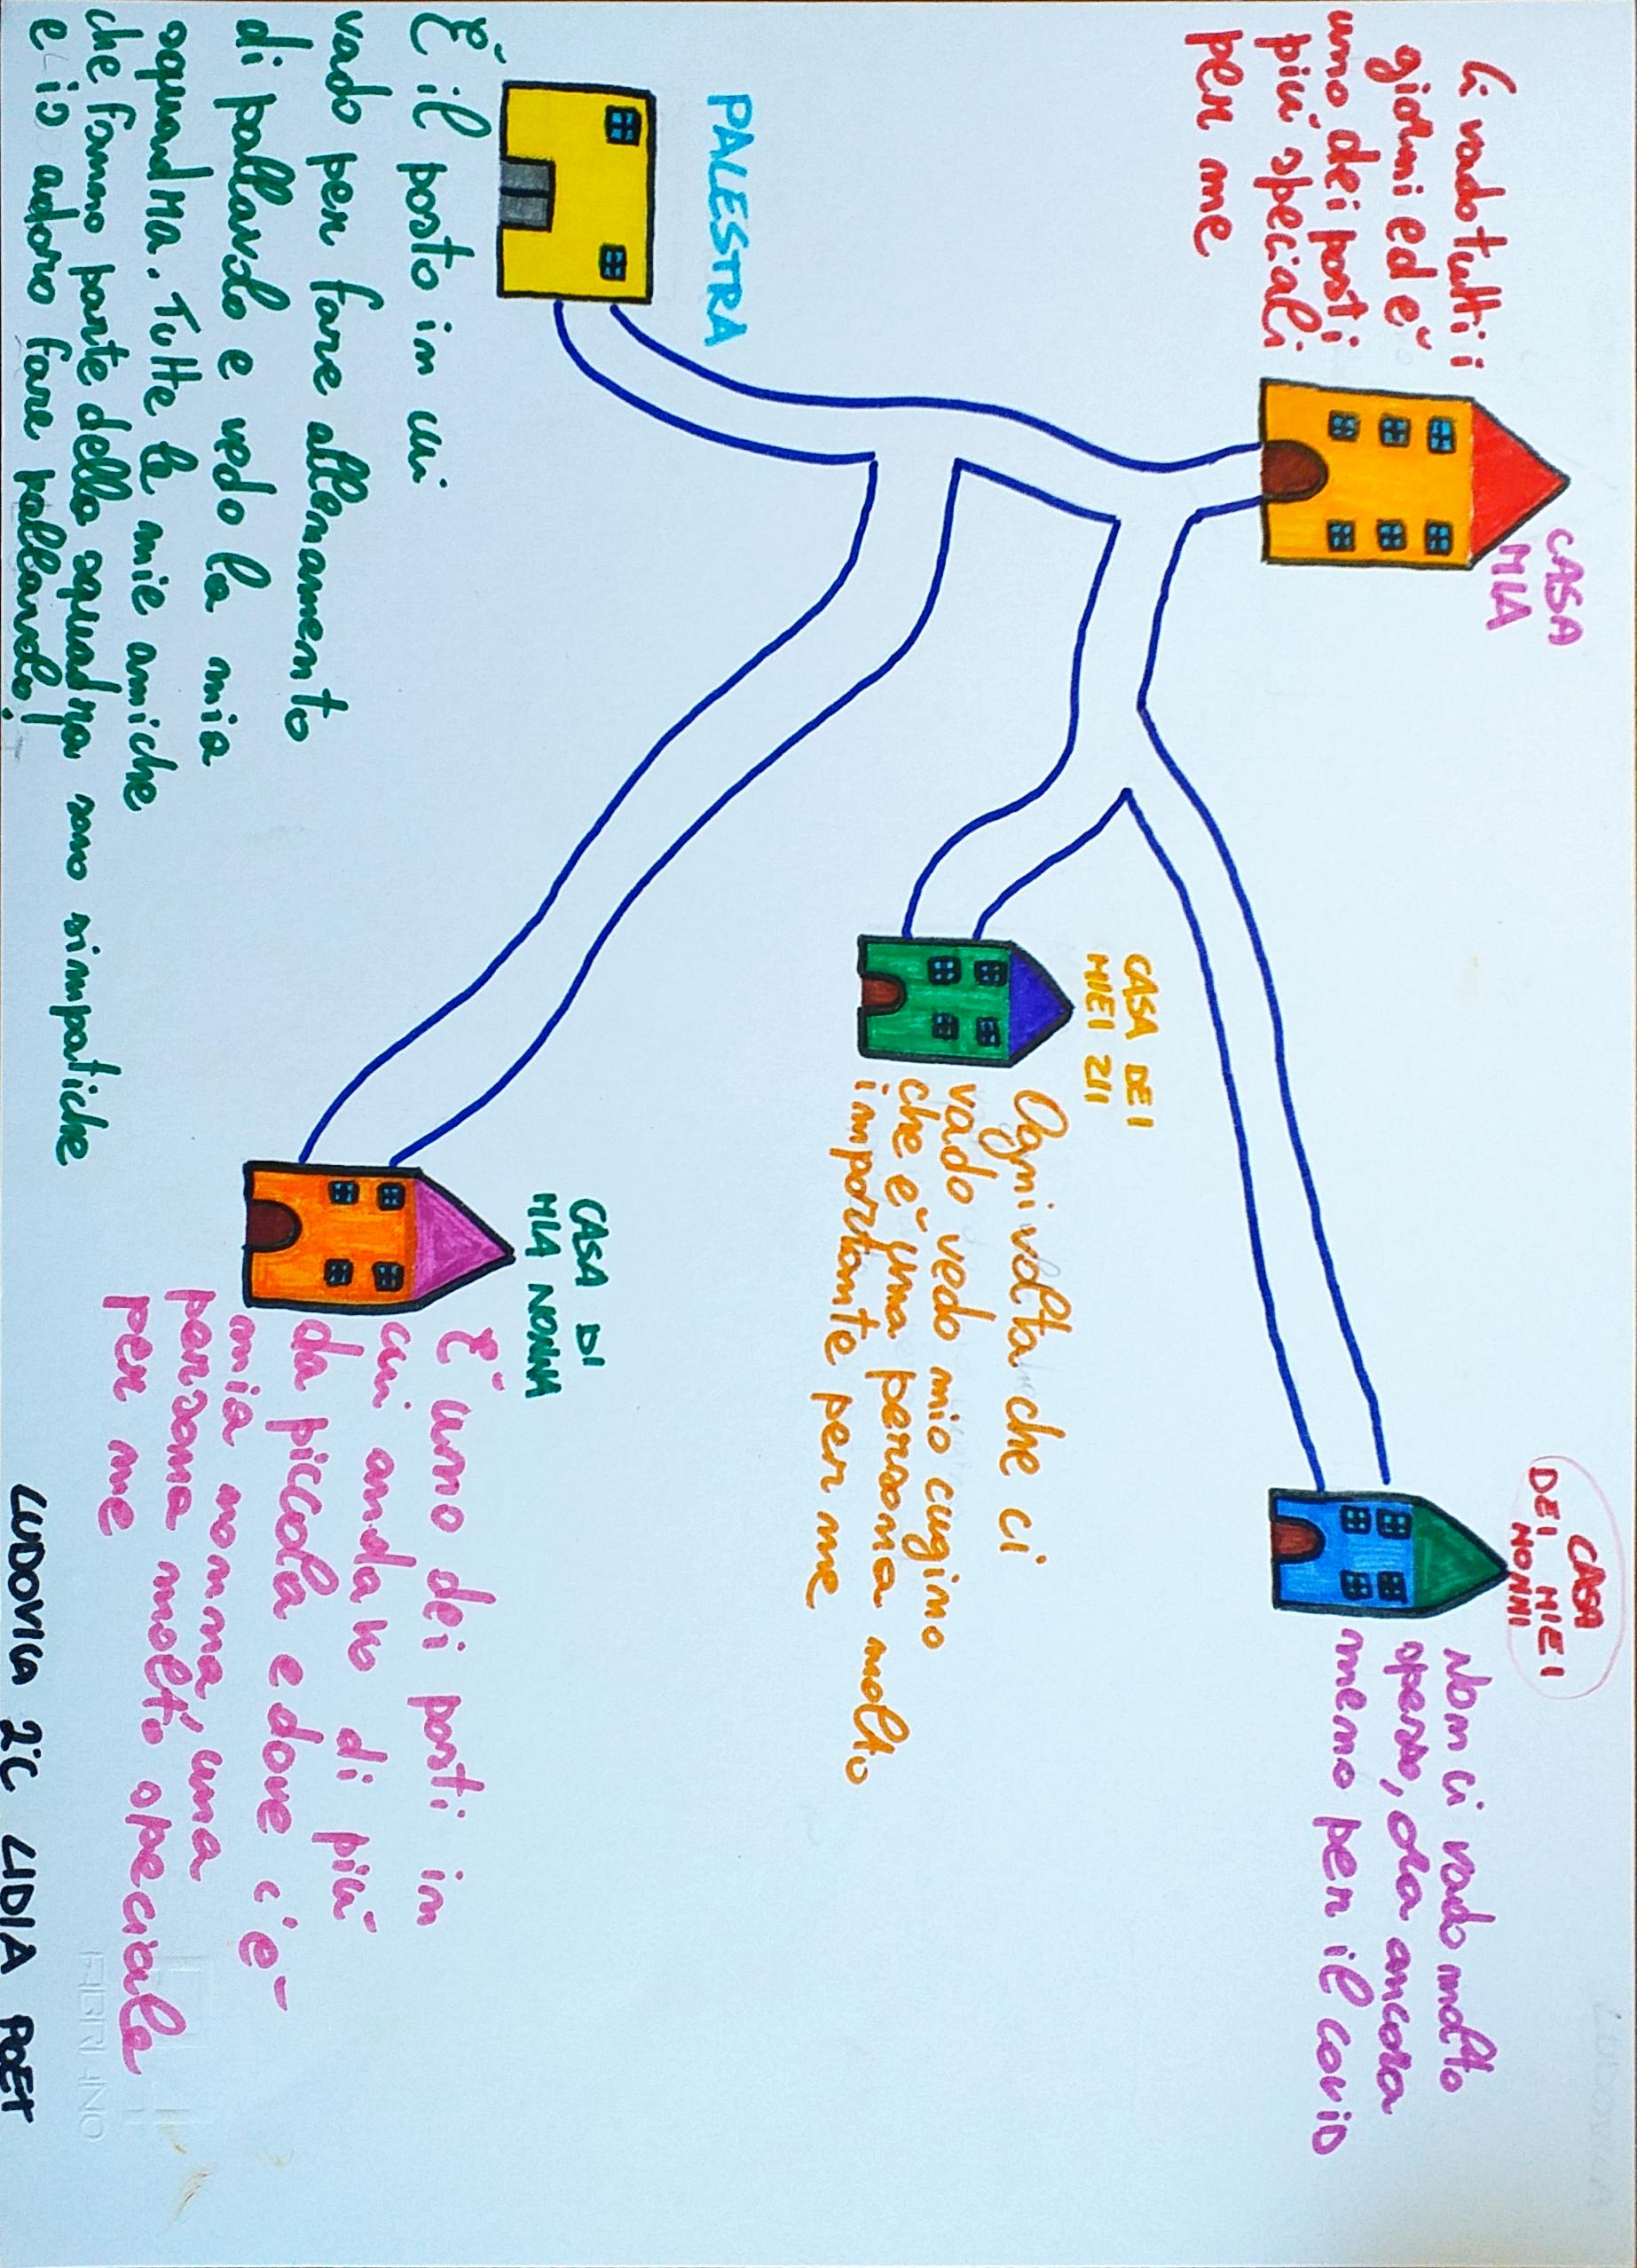 Ci vado tutti i
giorni ed è
uno dei posti
più speciali
per me
CASA
MIA
CASA
DEI MIEI
NONNI
Non ci vado molto
spesso, ora ancora
meno per il covid
CASA DEI
MIEI ZII
Ogni volta che ci
vado vedo mio cugino
che è una persona molto
importante per me
PALESTRA
È il posto in cui
vado per fare allenamento
di pallavolo e vedo la mia
squadra. Tutte le mie amiche
che fanno parte della squadra sono simpatiche
e io adoro fare pallavolo!
CASA DI
MIA NONNA
È uno dei posti in
cui andavo di più
da piccola e dove c'è
mia nonna, una
persona molto speciale
per me
LUDOVICA 2°C LIDIA POET
FABRIANO